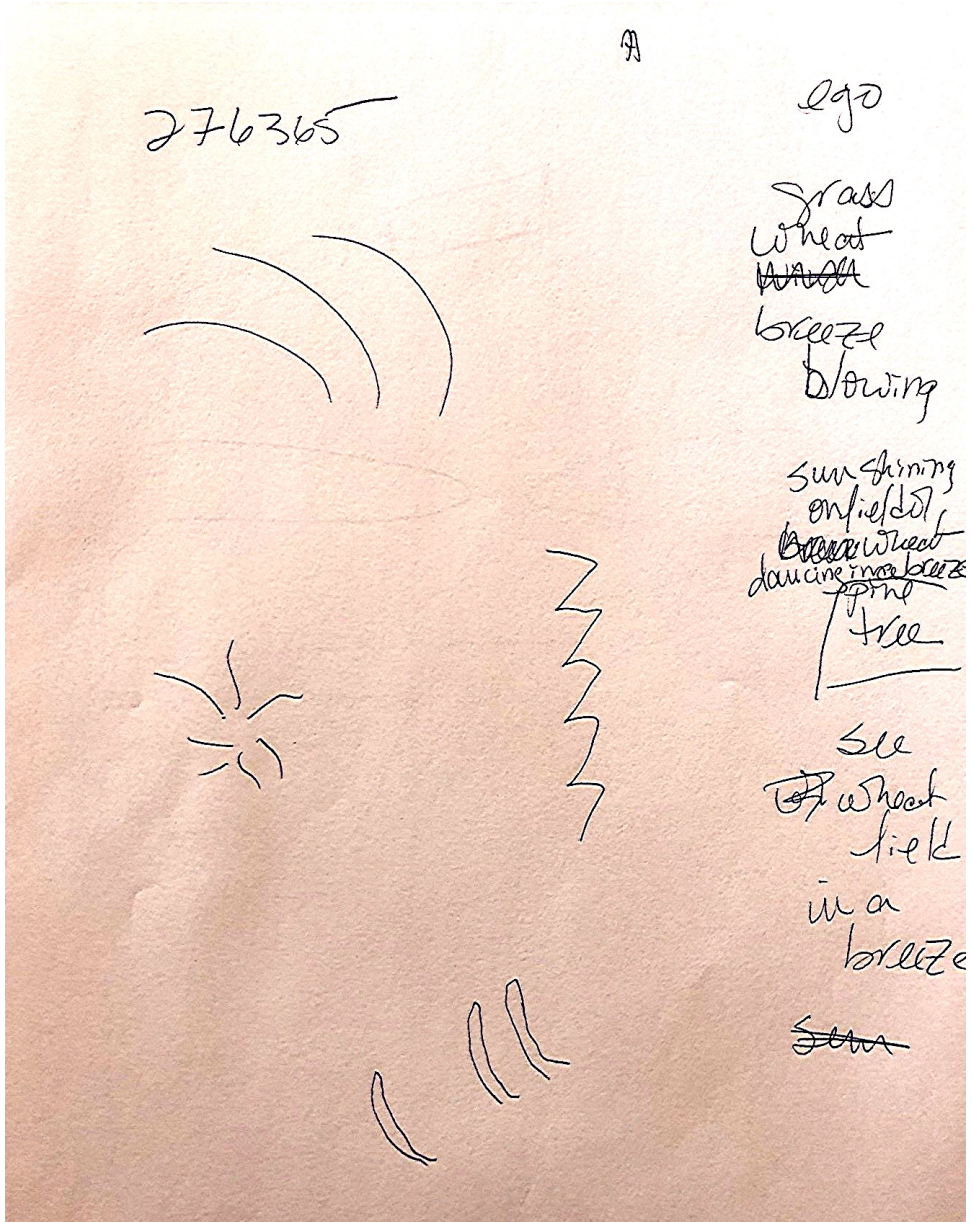 A
276365
ego
grass
wheat
breeze
blowing
sun shining
on field of
wheat
dancing in breeze
pine
tree
see
wheat
field
in a
breeze